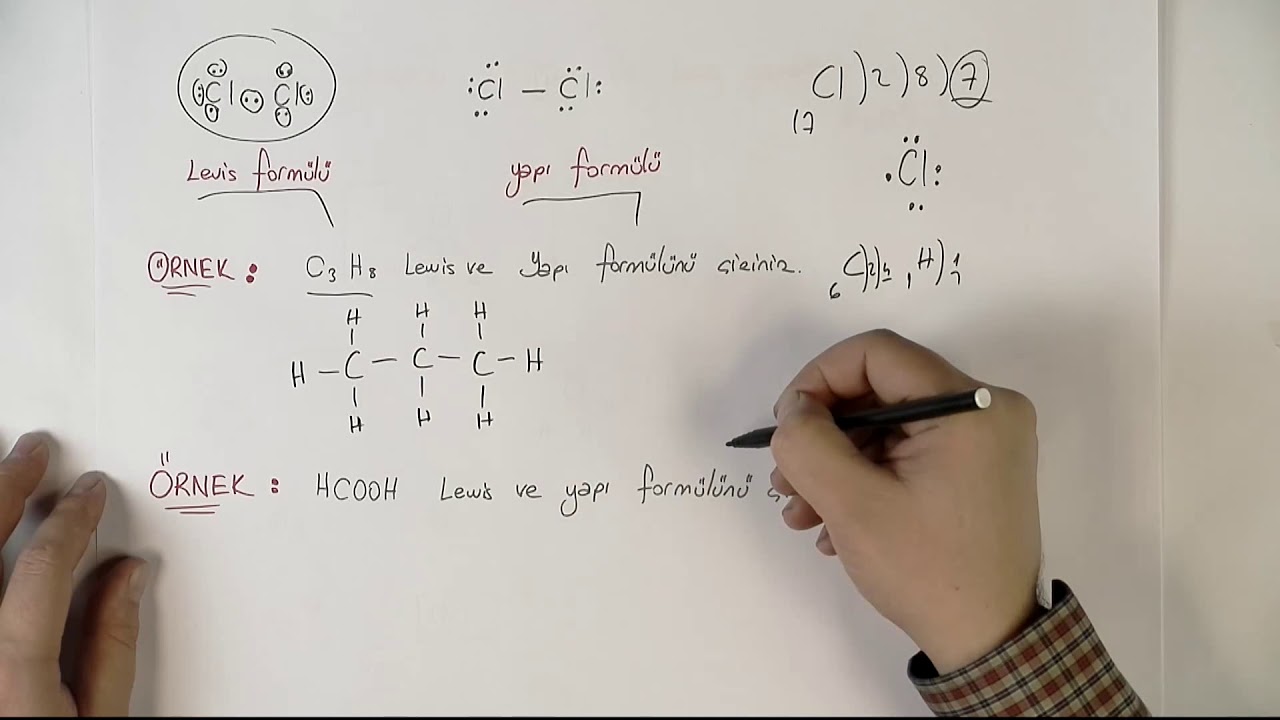 :C̈l : C̈l:
:C̈l — C̈l:
Cl )2 )8 )7
17
Levis formülü
yapı formülü
·C̈l:
ÖRNEK : C₃H₈ Lewis ve yapı formülünü çiziniz.
₆C )2)4 ₁H )1
1
H H H
H — C — C — C — H
H H H
ÖRNEK : HCOOH Lewis ve yapı formülünü ç